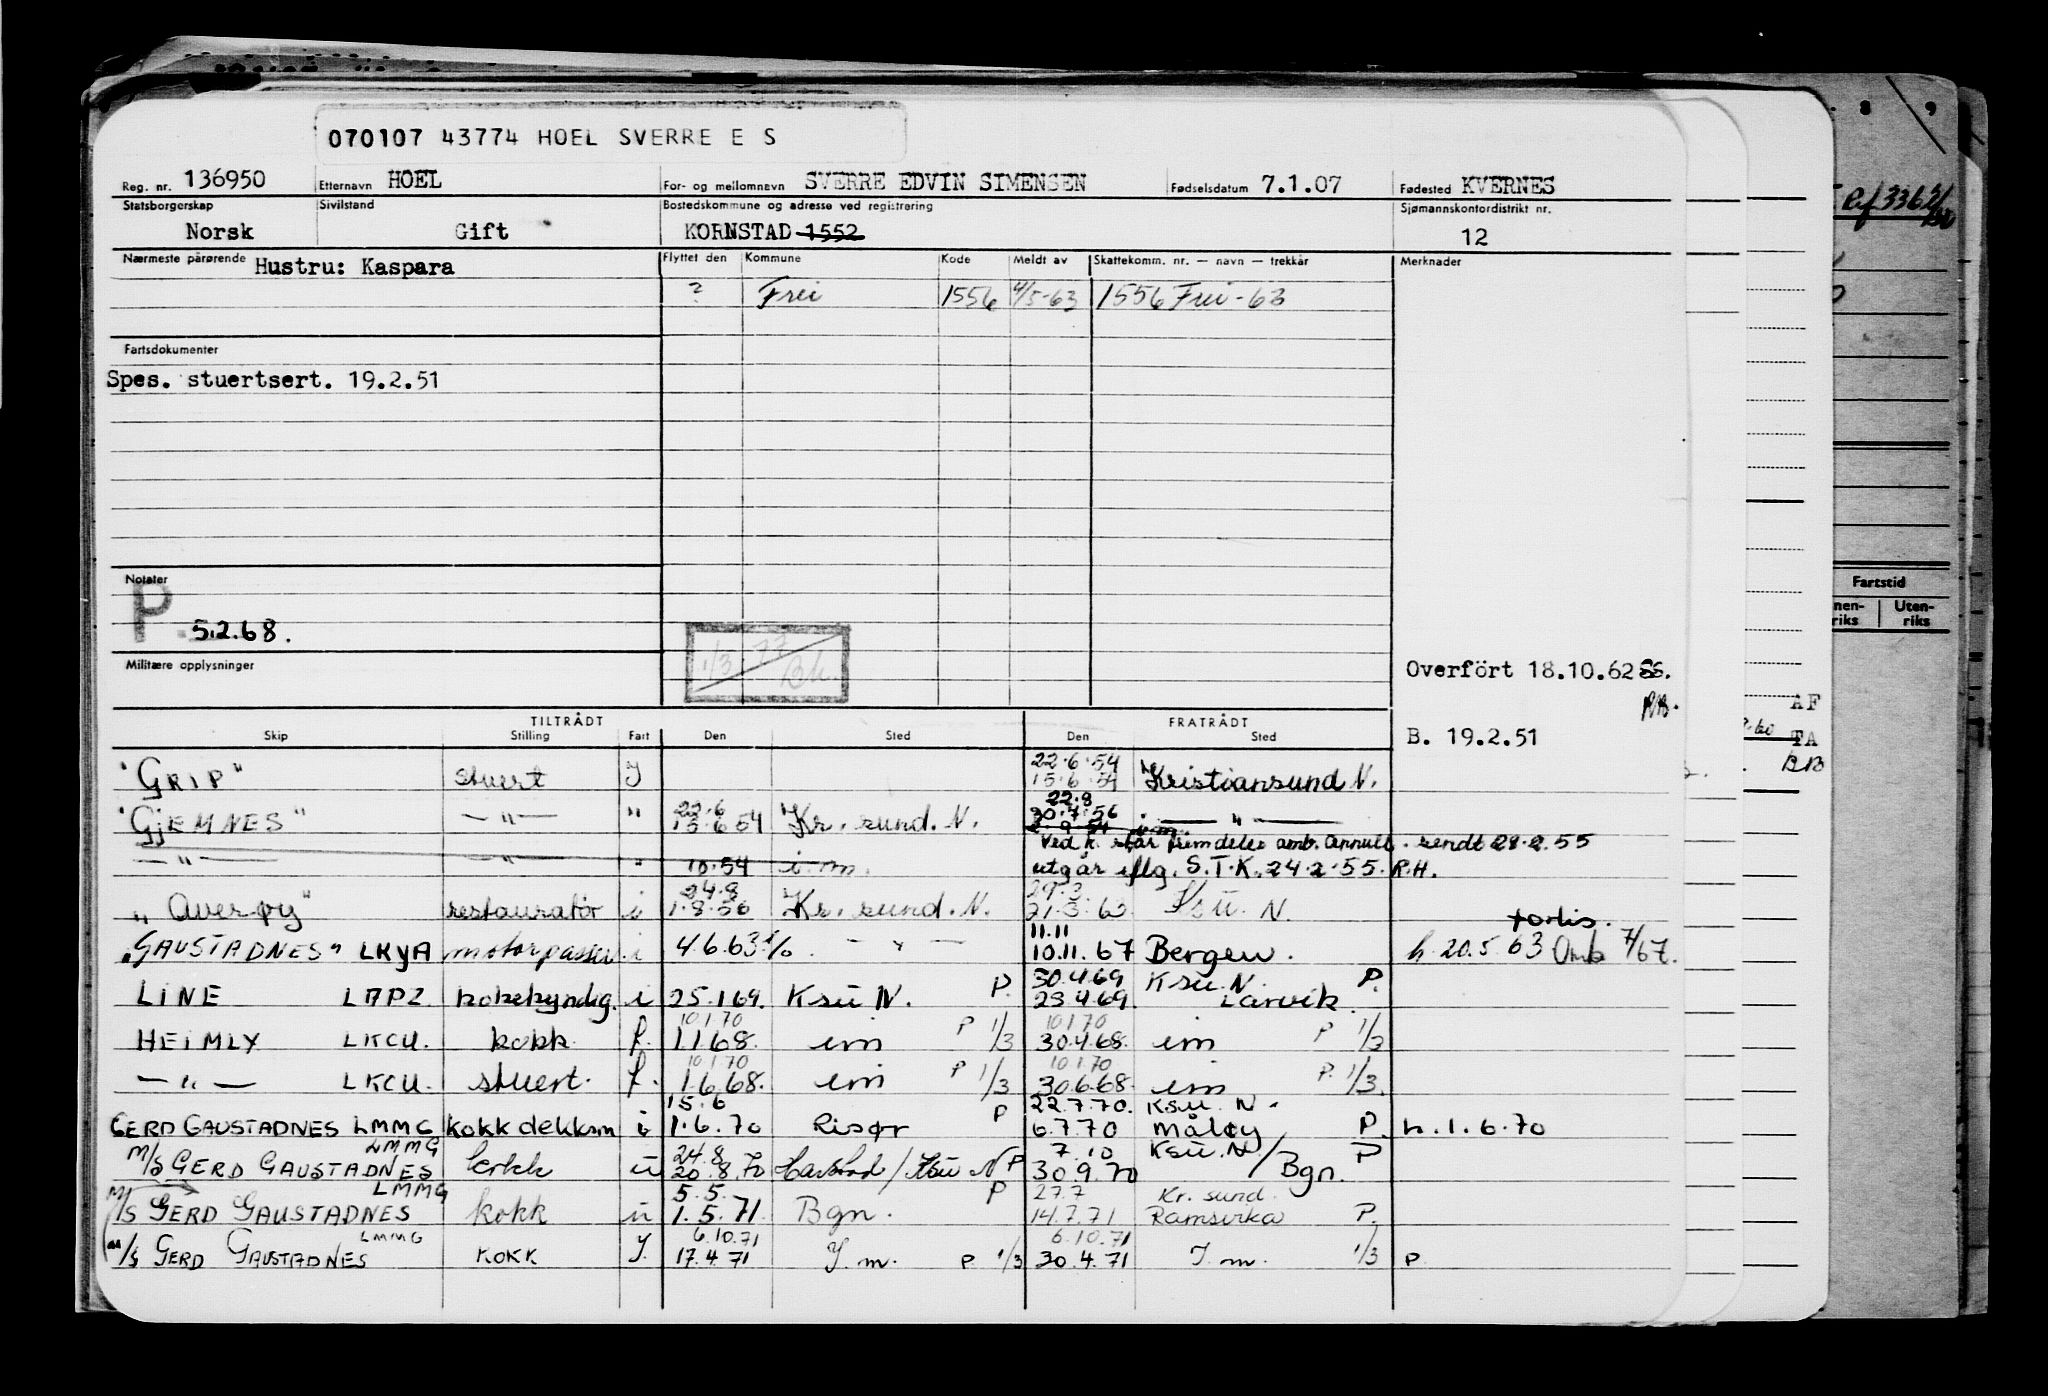 070107 43774 HOEL SVERRE E S
Reg. nr. 136950 Etternavn HOEL For- og mellomnavn SVERRE EDVIN SIMENSEN Fødselsdatum 7.1.07 Fødested KVERNES
Statsborgerskap Sivilstand Bostedskommune og adresse ved registrering Sjømannskontordistrikt nr.
Norsk Gift KORNSTAD 1552 12
Nærmeste pårørende Hustru: Kaspara Flyttet den Kommune Kode Meldt av Skattekomm. nr. — navn — trekkår Merknader
? Frei 1556 4/5-63 1556 Frei - 63
Fartsdokumenter
Spes. stuertsert. 19.2.51
Notater
P 5.2.68.
1/3 77
Militære opplysninger
Overfört 18.10.62 SS.
RB.
TILTRÅDT FRATRÅDT
Skip Stilling Fart Den Sted Den Sted
B. 19.2.51
22.6.54
"GRIP" stuert I 15.6.54 Kristiansund N.
22.8
"GJEMNES" — " — " 22.6 15.6 54 Kr. sund. N. 30.7.56 — " —
2.9.54 i.m.
Ved k. står fremdeles omb. Annull. sendt 28.2.55
— " — — " — " 10.54 i.m. utgår iflg. S.T.K. 24.2.55. R.H.
24.8 29.3
"Averøy" restauratør i 1.8.56 Kr. sund. N. 21.3.63 Ksu. N.
11.11
"GAUSTADNES" LKYA motorpasser i 4.6.63 — " — 10.11.67 Bergen. h. 20.5.63 Omb 7/67.
30.4.69 Ksu. N. P.
LINE LAPZ kokekyndig. i 25.1 69. Ksu N. P. 23.4.69. Larvik.
10.1.70 10.1.70
HEIMLY LKCU. kokk f. 1.1.68. im P 1/3 30.4.68. im P 1/3
10.1.70 10.1.70
— " — LKCU. stuert. f. 1.6.68. im P 1/3 30.6.68. im P. 1/3.
15.6 22.7.70. Ksu. N.
GERD GAUSTADNES LMMG kokk dekksm i 1.6.70 Risør P 6.7.70 Måløy P. h. 1.6.70
LMMG 24.8 7.10 Ksu. N/ P
M/S GERD GAUSTADNES kokk u 20.8.70 Harstad / Ksu N P 30.9.70 Bgn.
LMMG 5.5. P 27.7 Kr. sund.
M/S GERD GAUSTADNES kokk u 1.5.71. Bgn. 14.7.71 Ramsvika P.
LMMG 6.10.71 6.10.71
M/S GERD GAUSTADNES KOKK I. 17.4.71 I. m. P 1/3 30.4.71 I. m. 1/3 P
8 9
Fartstid
Uten-
riks riks
AF
TA
BB